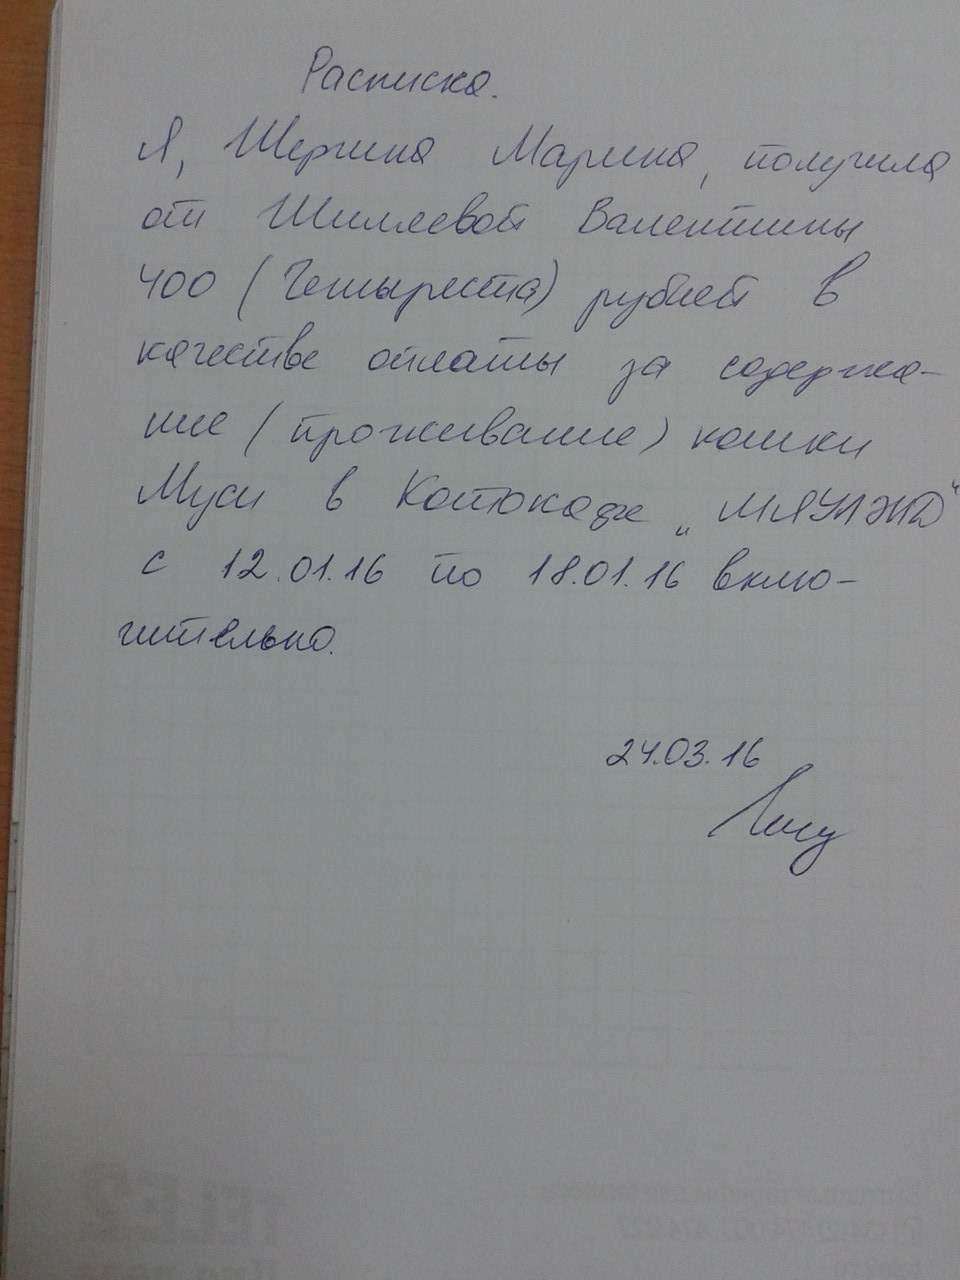 Расписка.
Я, Шергина Марина, получила
от Шиляевой Валентины
400 (Четыреста) рублей в
качестве оплаты за содержа-
ние (проживание) кошки
Муси в Котокафе „МЯУНЖД"
с 12.01.16 по 18.01.16 вклю-
чительно.
24.03.16
TELE2